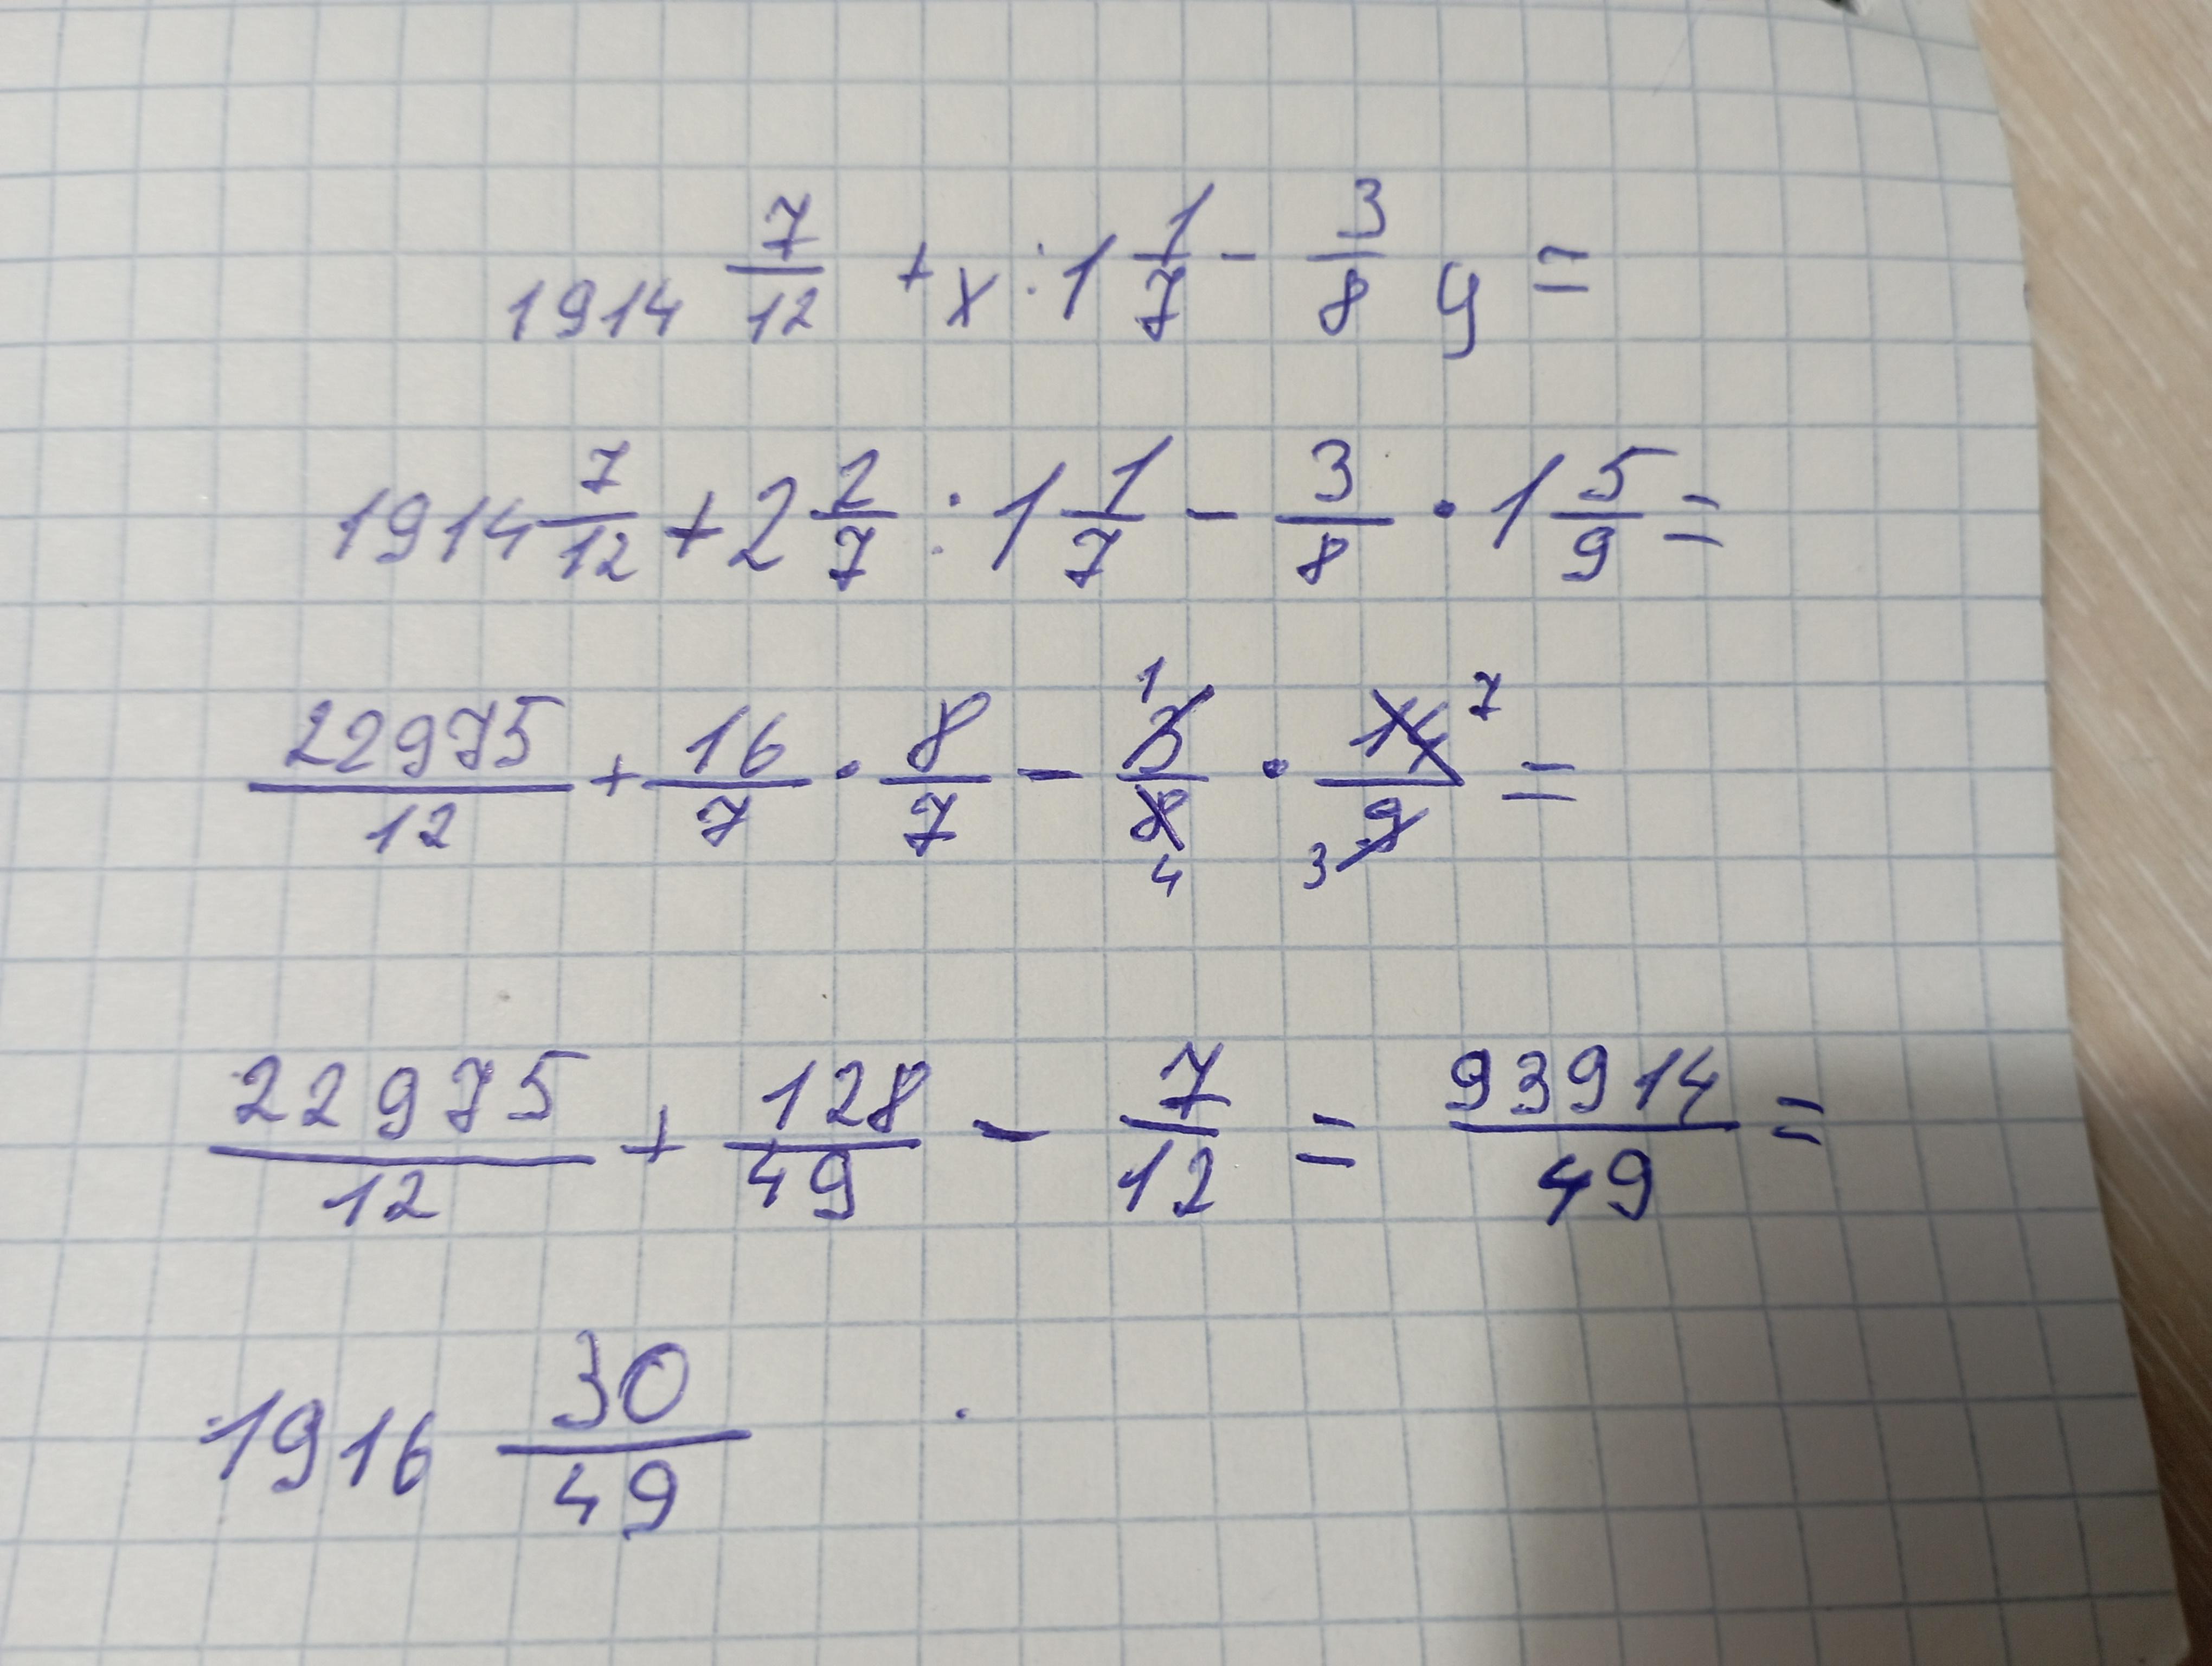 1914 7/12 + x : 1 1/7 - 3/8 y =
1914 7/12 + 2 2/7 : 1 1/7 - 3/8 · 1 5/9 =
22975/12 + 16/7 · 8/7 - 3/8 · 14/9 =
1 7
4 3
22975/12 + 128/49 - 7/12 = 93914/49 =
1916 30/49